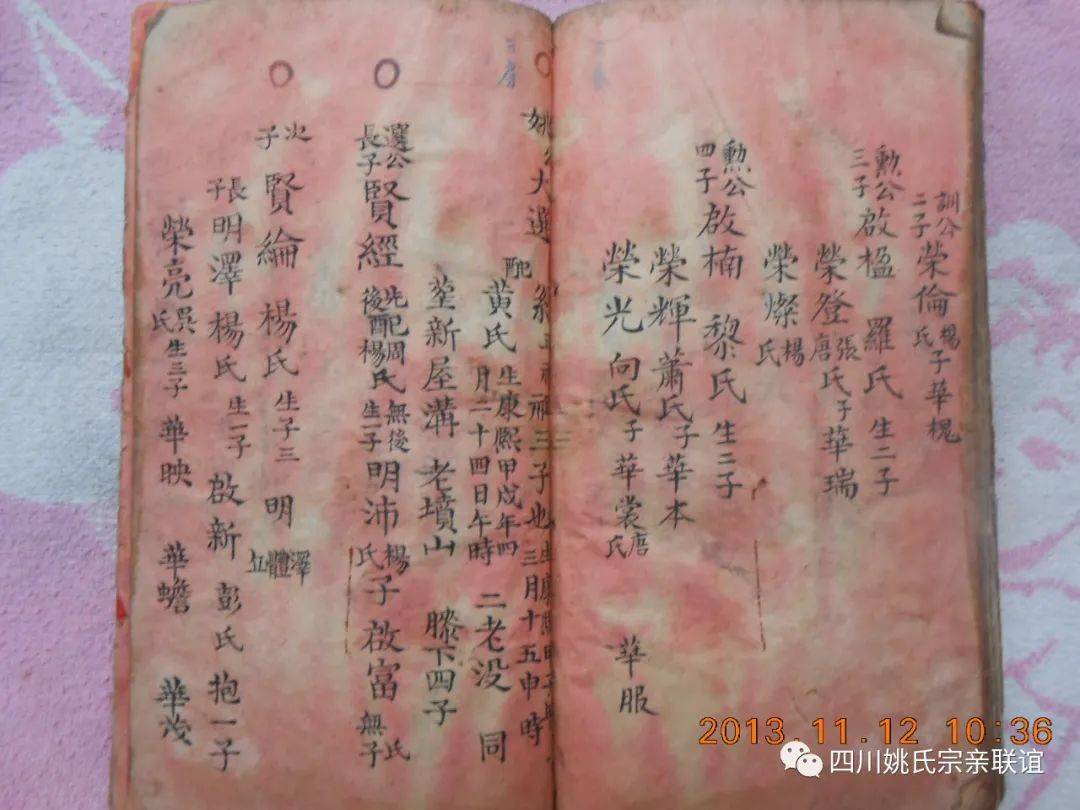 訓公二子榮倫楊氏子華槐
勲公三子啟楹羅氏生二子
榮登張唐氏子華瑞
榮燦楊氏
勲公四子啟楠黎氏生二子
榮輝蕭氏子華本
榮光向氏子華裳唐氏 華服
房
姚公大選 祖三子也生康熙 三月十五申時
配黄氏生康熙甲戍年四月二十四日午時二老没同
塟新屋溝老墳山膝下四子
選公長子賢經先配周氏無後後配楊氏生一子明沛楊氏子啟富氏無子
次子賢綸楊氏生子三明澤體立
長子明澤楊氏生一子啟新彭氏抱一子
榮亮吳氏生三子華映華蟾華茂
2013.11.12 10:36
四川姚氏宗亲联谊